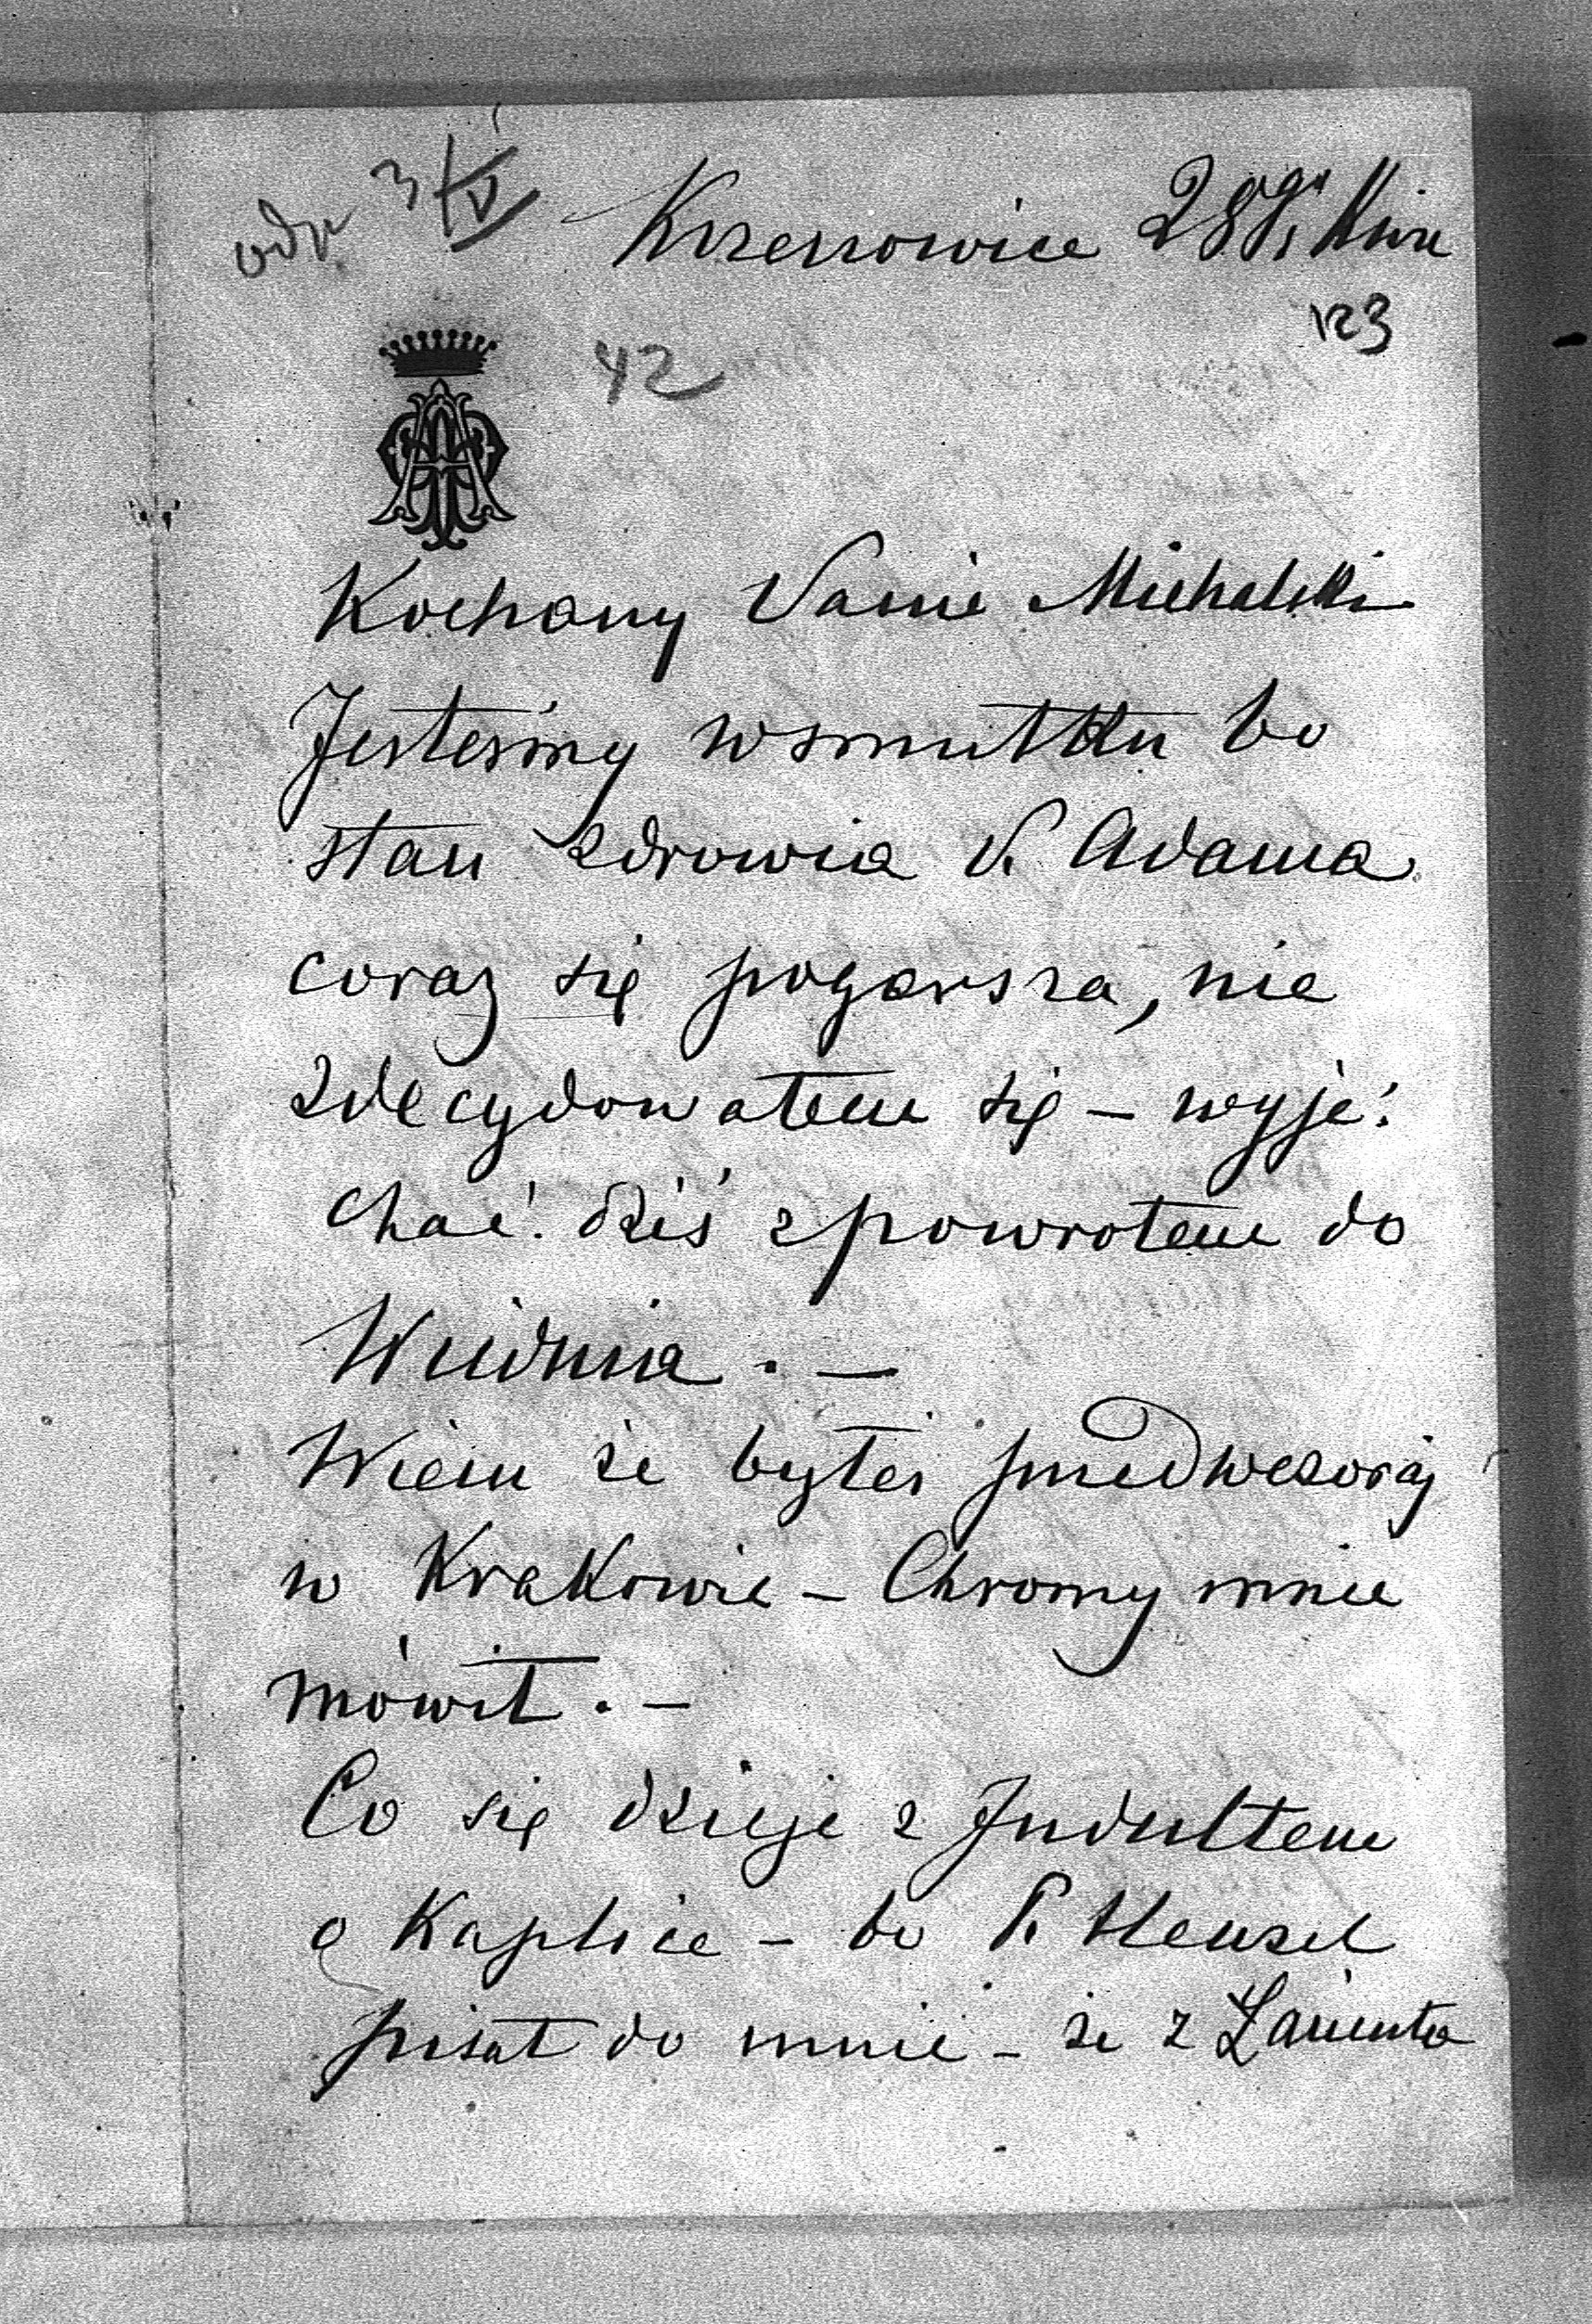 odp. 3/IV
Krzeszowice 28go Kwie
123
42
Kochany Panie Michalski
Jesteśmy w smutku bo
stan zdrowia P. Adama
coraz się pogarsza, nie
zdecydowałem się – wyje:
chać. dziś z powrotem do
Wiednia. –
Wiem że byłeś przedwczoraj
w Krakowie – Chromy mnie
mówił. –
Co się dzieje z Indultem
o Kaplice – bo P. Hensel
pisał do mnie – że z